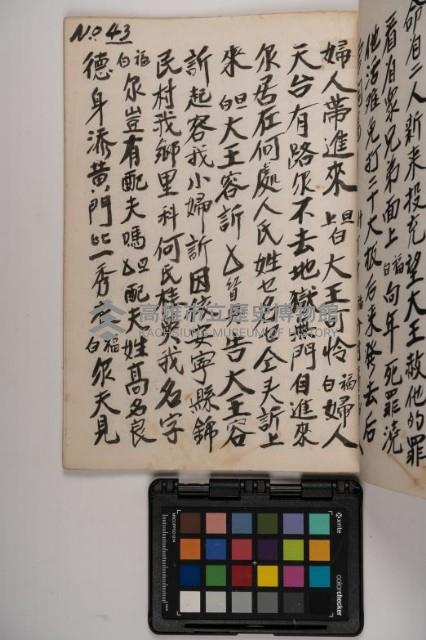 命有二人新来投充望大王赦他的罪
看有眾兄弟面上福白向年死罪浇
他活难免打二十大板后来發去后
No. 43
婦人帶進來旦白大王可怜福白婦人
天台有路尔不去地獄無門自進來
尔居在何處人氏姓乜名乜仝夫訴上
來旦白大王容訴
告大王容
訴起容我小婦訴因
安寧縣錦
民村我鄉里科何民桂英我名字
福白尔豈有配夫嗎旦配夫姓高名良
德身添黄門
一秀
福白尔天見
高雄市立歷史博物館
KAOHSIUNG MUSEUM OF HISTORY
x-rite
colorchecker